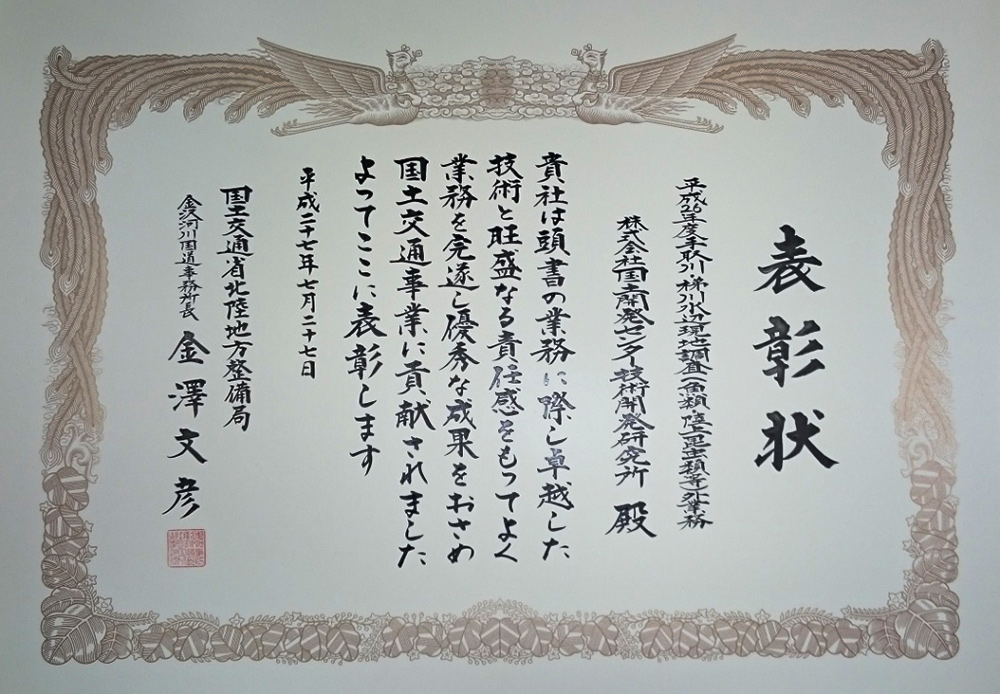 表彰状
平成26年度手取川・梯川水辺現地調査(魚類・陸上昆虫類等)外業務
株式会社国土開発センター技術開発研究所 殿
貴社は頭書の業務に際し卓越した
技術と旺盛なる責任感をもってよく
業務を完遂し優秀な成果をおさめ
国土交通事業に貢献されました
よってここに表彰します
平成二十七年七月二十七日
国土交通省北陸地方整備局
金沢河川国道事務所長 金澤文彦